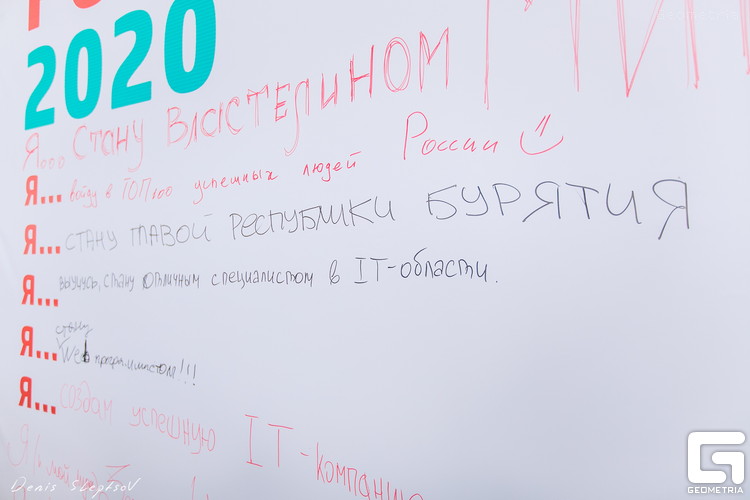 2020
Я... Стану Властелином
Я... войду в ТОП100 успешных людей России
Я... СТАНУ ГЛАВОЙ РЕСПУБЛИКИ БУРЯТИЯ
Я... выучусь, стану отличным специалистом в IT-области.
Я... стану Web программистом!!!
Я... создам успешную IT-компанию
Я
Denis Sleptsov
GEOMETRIA